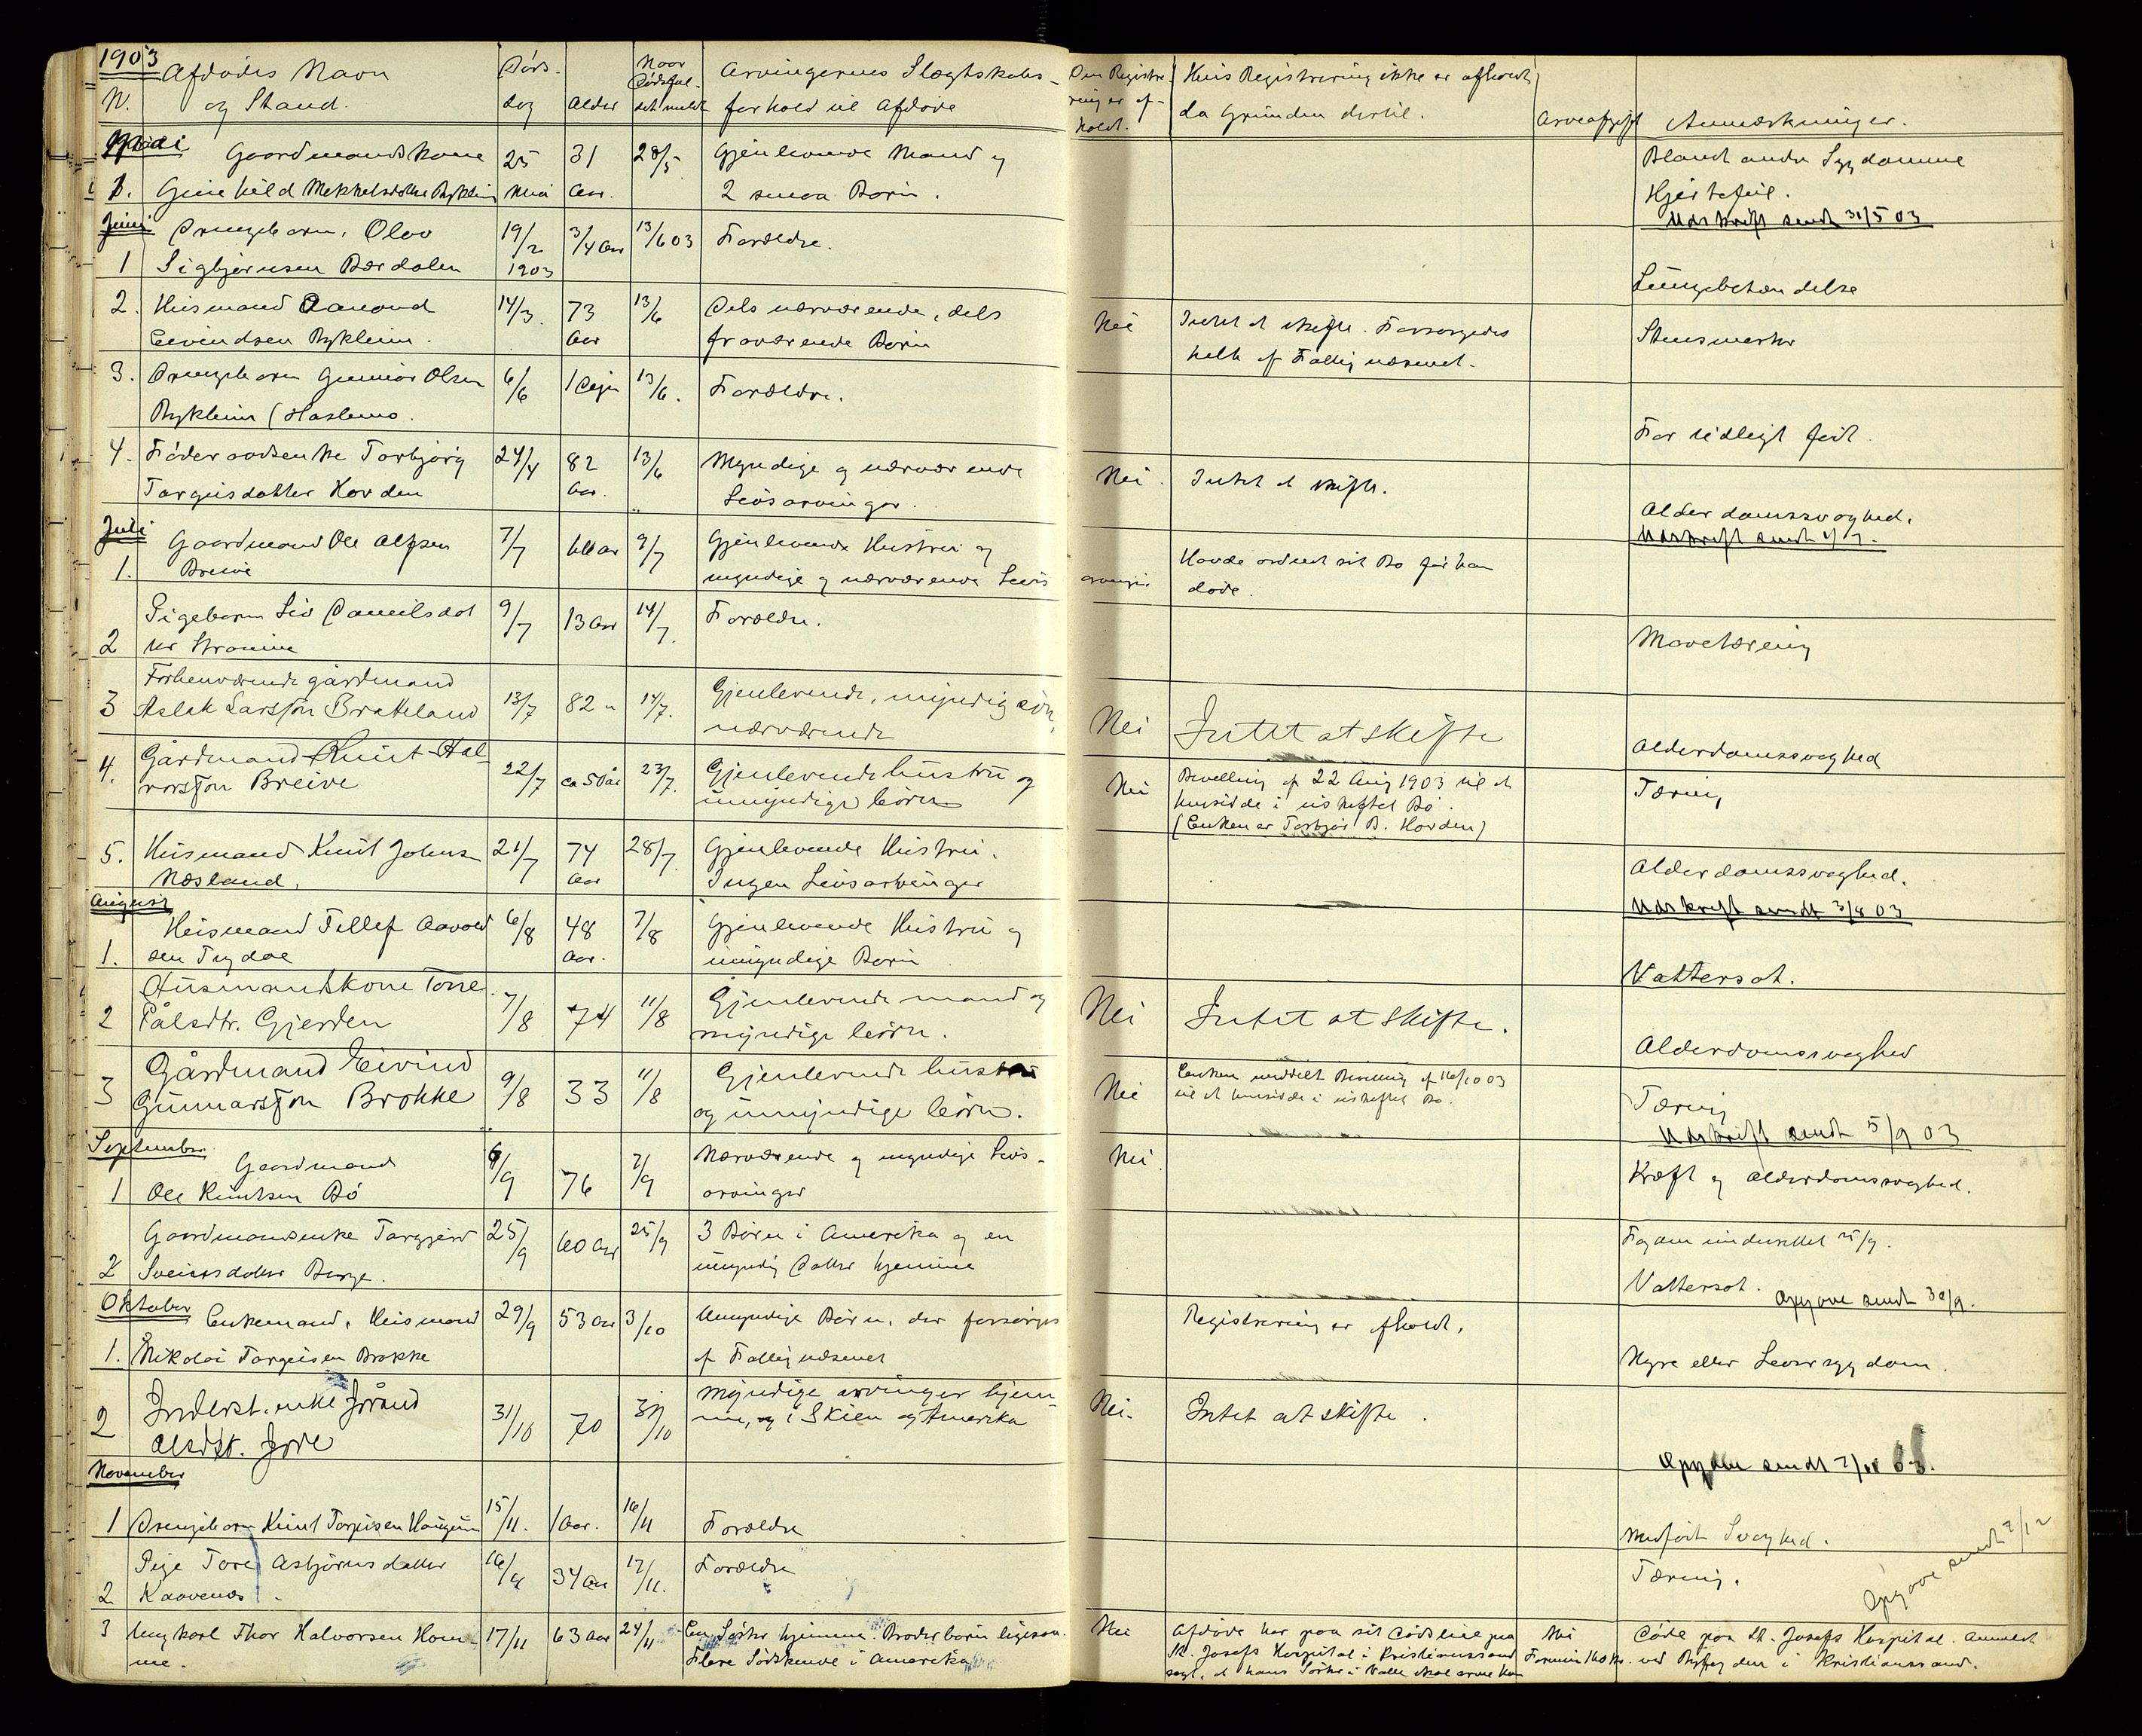 1903
N.
Afdødes Navn
og Stand.
Døds-
dag
Alder
Naar
Dødsfal-
det meldt
Arvingernes Slægtskabs-
forhold til Afdøde
Om Registre-
ring er af-
holdt.
Hvis Registrering ikke er afholdt,
da Grunden dertil.
Arveafgift
Anmærkninger.
Mai
1.
Gaardmandskone
Gunhild Mikkelsdotter Rykkeim
25
Mai
31
Aar.
28/5
Gjenlevende Mand og
2 smaa Børn.
Blandt andre Sygdomme
Hjertefeil.
Udskrift sendt 31/5 03
Juni
1
Drengebarn, Olav
Sigbjørnsen Bærdalen
19/2
1903
3/4 Aar
13/6 03
Forældre.
Lungebetændelse
2.
Husmand Aanond
Eivindsen Rykkeim.
14/3.
73
Aar
13/6
Dels nærværende, dels
fraværende Børn
Nei
Intet at skifte. Forsørgedes
helt af Fattigvæsenet.
Stensmerter
3.
Drengebarn Gunnar Olsen
Rykkeim (Haslemo.
6/6
1 Døgn
13/6.
Forældre.
For tidligt født.
4.
Føderaadsenke Torbjørg
Targeisdatter Hovden
24/4
82
Aar.
13/6
Myndige og nærværende
Livsarvinger.
Nei.
Intet at skifte.
Alderdomssvaghed.
Udskrift sendt
Juli
1.
Gaardmand Ole Alfsen
Breive
7/7
Aar
9/7
Gjenlevende Hustru og
myndige og nærværende Livs
arvinger
Havde ordnet sit Bo før han
døde.
2
Pigebarn Liv Danielsdat
ter Straume
9/7
13 Aar
14/7.
Forældre.
Mavetæring
3
Forhenværende gårdmand
Aslak Larssøn Brotteland
13/7
82 "
14/7.
Gjenlevende, myndig søn,
nærværende
Nei
Intet at skifte
Alderdomssvaghed
4.
Gårdmand Knut Hal-
vorssøn Breive
22/7
ca 50 år
23/7.
Gjenlevende hustru og
umyndige børn
Nei
Bevilling af 22 Aug 1903 til at
hensidde i uskiftet Bo.
(Enken er Torbjør B. Hovden)
Tæring
5.
Husmand Knut Johns
Næsland.
21/7
74
Aar
28/7.
Gjenlevende Hustru.
Ingen Livsarvinger
Alderdomssvaghed.
Udskrift sendt 3/8 03
August
1.
Husmand Tellef Aavold
sen Trydal
6/8
48
Aar.
7/8
Gjenlevende Hustru og
umyndige Børn
Vattersot.
2
Husmandskone Tone
Pålsdtr. Gjerden
7/8
74
11/8
Gjenlevende mand og
myndige børn.
Nei
Intet at skifte.
Alderdomssvaghed
3
Gårdmand Eivind
Gunnarssøn Brokke
9/8
33
11/8
Gjenlevende hustru
og umyndige børn.
Nei
Enken meddelt Bevilling af 16/10 03
til at hensidde i uskiftet Bo.
Tæring
Udskrift sendt 5/9 03
September
1
Gaardmand
Ole Knutsen Bø
6/9
76
7/9
Nærværende og myndige Livs-
arvinger
Nei.
Kræft og Alderdomssvaghed.
2
Gaardmandsenke Torgjerd
Sveinsdatter Berge.
25/9
60 Aar
25/9
3 Børn i Amerika og en
umyndig Datter hjemme
Fogden underrettet 25/9.
Vattersot.
Opgave sendt 30/9.
Oktober
1.
Enkemand, Husmand
Nikolai Torgeisen Brokke
29/9
53 Aar
3/10
Umyndige Børn, der forsørges
af Fattigvæsenet
Registrering er afholdt.
Nyre eller Leversygdom.
2
Inderst. enke Jorånd
Olsdtr. Jore
31/10
70
31/10
Myndige arvinger hjem-
me, og i Skien og Amerika
Nei.
Intet at skifte.
Opgave sendt 03.
November
1
Drengebarn Knut Torjusen Haugum
15/11.
1 Aar.
16/11
Forældre
Medfødt Svaghed.
2
Pige Tore Asbjørnsdatter
Kaavenes
16/11
34 Aar
17/11.
Forældre
Tæring.
Opgave sendt 2/12
3
Ungkarl Thor Halvorsen Hom-
me.
17/11
63 Aar
24/11
En Søster hjemme. Broderbørn ligesaa.
Flere Sødskende i Amerika
Nei
Afdøde har paa sit Dødsleie paa
St. Josefs Hospital i Kristianssand
sagt, at hans Søster i Valle skal arve ham
Nei
Formue 160 Kr.
Døde paa St. Josefs Hospital. Anmeldt
ved Byfogden i Kristianssand.